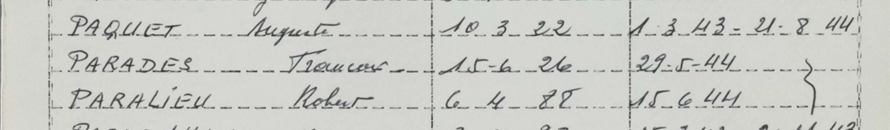 PAQUET Auguste 10 3 22 1 3 43 - 21 - 8 44
PARADES Francois 15-6 26 29-5-44
PARALIEU Robert 6 4 88 15 6 44